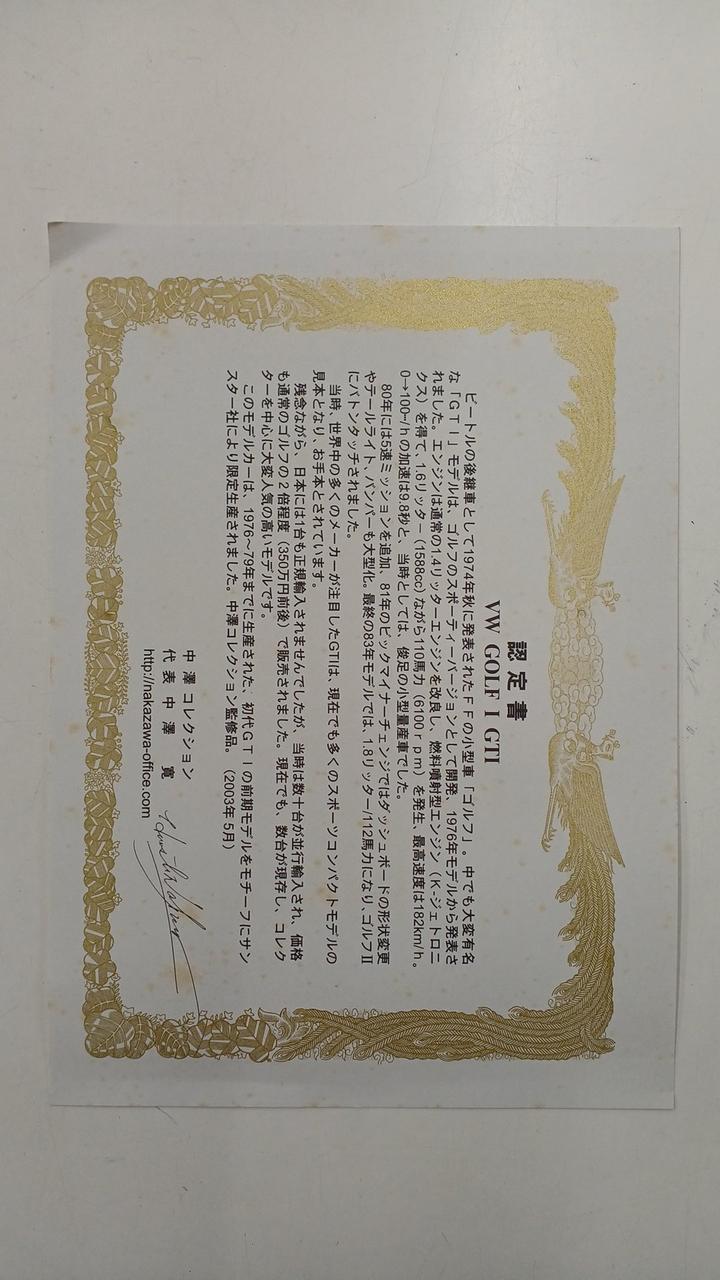 認定書
VW GOLF I GTI
ビートルの後継車として1974年秋に発表されたＦＦの小型車「ゴルフ」。中でも大変有名
な「ＧＴＩ」モデルは、ゴルフのスポーティーバージョンとして開発、1976年モデルから発表さ
れました。エンジンは通常の1.4リッターエンジンを改良し、燃料噴射型エンジン（K-ジェトロニ
クス）を得て、1.6リッター（1588cc）ながら110馬力（6100ｒｐｍ）を発生、最高速度は182km/h。
0→100㌔/hの加速は9.8秒と、当時としては、俊足の小型量産車でした。
80年には5速ミッションを追加、81年のビックマイナーチェンジではダッシュボードの形状変更
やテールライト、バンパーも大型化。最終の83年モデルでは、1.8リッター/112馬力になり、ゴルフⅡ
にバトンタッチされました。
当時、世界中の多くのメーカーが注目したGTIは、現在でも多くのスポーツコンパクトモデルの
見本となり、お手本とされています。
残念ながら、日本には1台も正規輸入されませんでしたが、当時は数十台が並行輸入され、価格
も通常のゴルフの２倍程度（350万円前後）で販売されました。現在でも、数台が現存し、コレク
ターを中心に大変人気の高いモデルです。
このモデルカーは、1976〜79年までに生産された、初代ＧＴＩの前期モデルをモチーフにサン
スター社により限定生産されました。中澤コレクション監修品。（2003年5月）
中澤コレクション
代表 中澤 寛
http://nakazawa-office.com